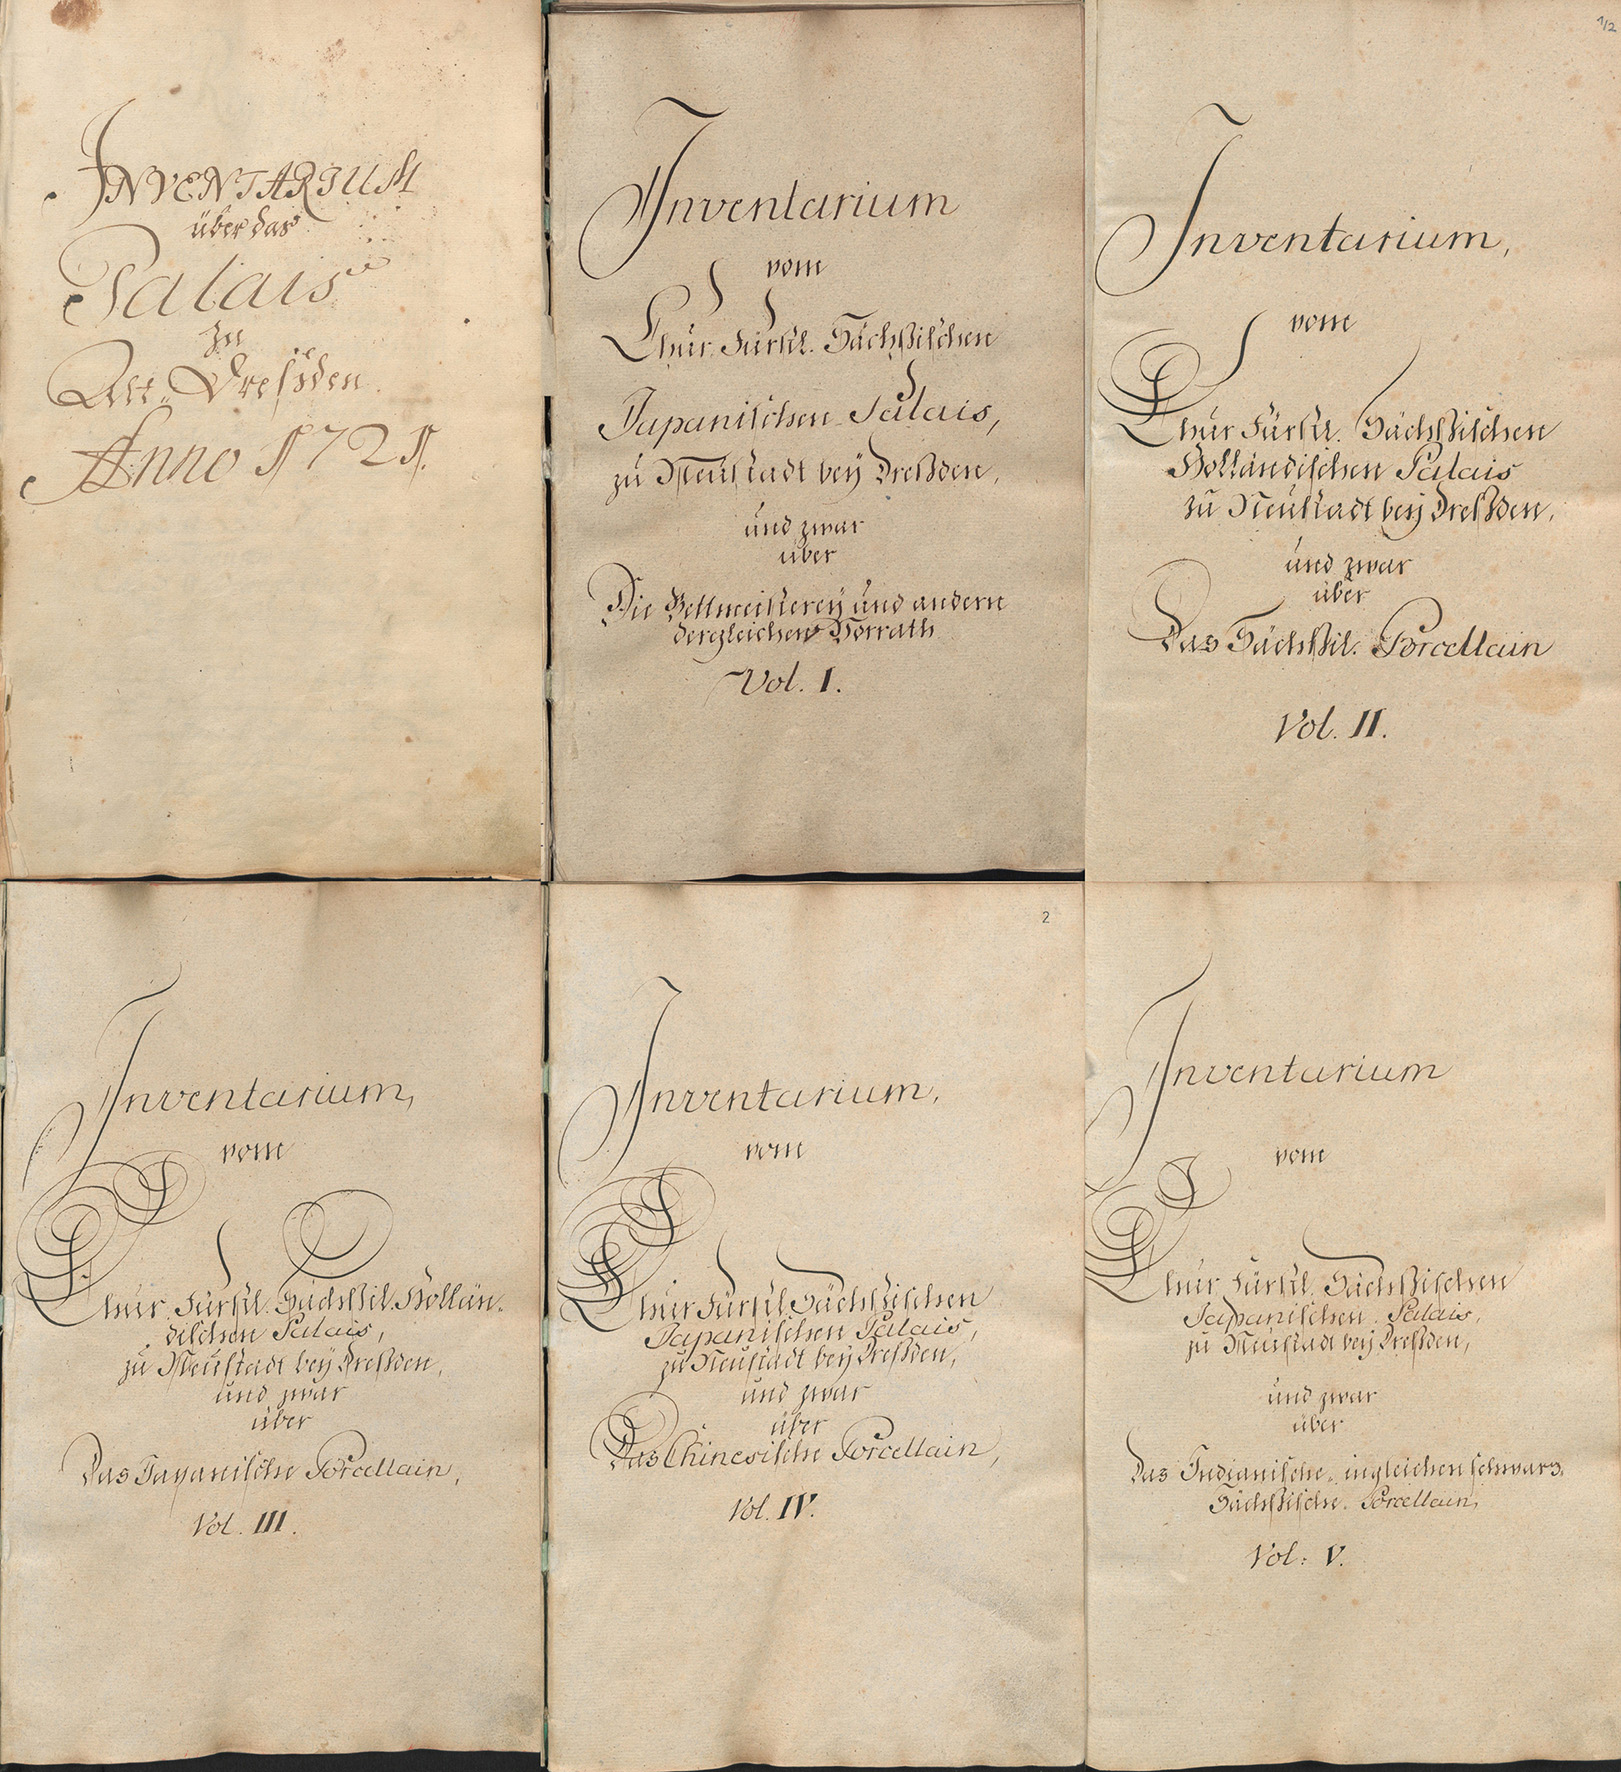 INVENTARIUM
über das
Palais
zu
Alt-Dresden
Anno 1721.
Inventarium
vom
Chur Fürstl. Sächßischen
Japanischen Palais,
zu Neustadt bey Dreßden,
und zwar
über
Die Bettmeisterey und andern
dergleichen Vorrath
Vol. I.
1/2
Inventarium,
vom
Chur Fürstl. Sächßischen
Holländischen Palais
zu Neustadt bey Dreßden,
und zwar
über
Das Sächßil. Porcellain
Vol. II.
Inventarium,
vom
Chur Fürstl. Sächßil. Hollän-
dischen Palais,
zu Neustadt bey Dreßden,
und zwar
über
Das Japanische Porcellain,
Vol. III.
2
Inventarium,
vom
Chur Fürstl. Sächßischen
Japanischen Palais,
zu Neustadt bey Dreßden,
und zwar
über
Das Chinesische Porcellain,
Vol. IV.
Inventarium
vom
Chur Fürstl. Sächßischen
Japanischen Palais,
zu Neustadt bey Dreßden,
und zwar
über
Das Indianische, ingleichen schwarz
Sächßische Porcellain,
Vol: V.